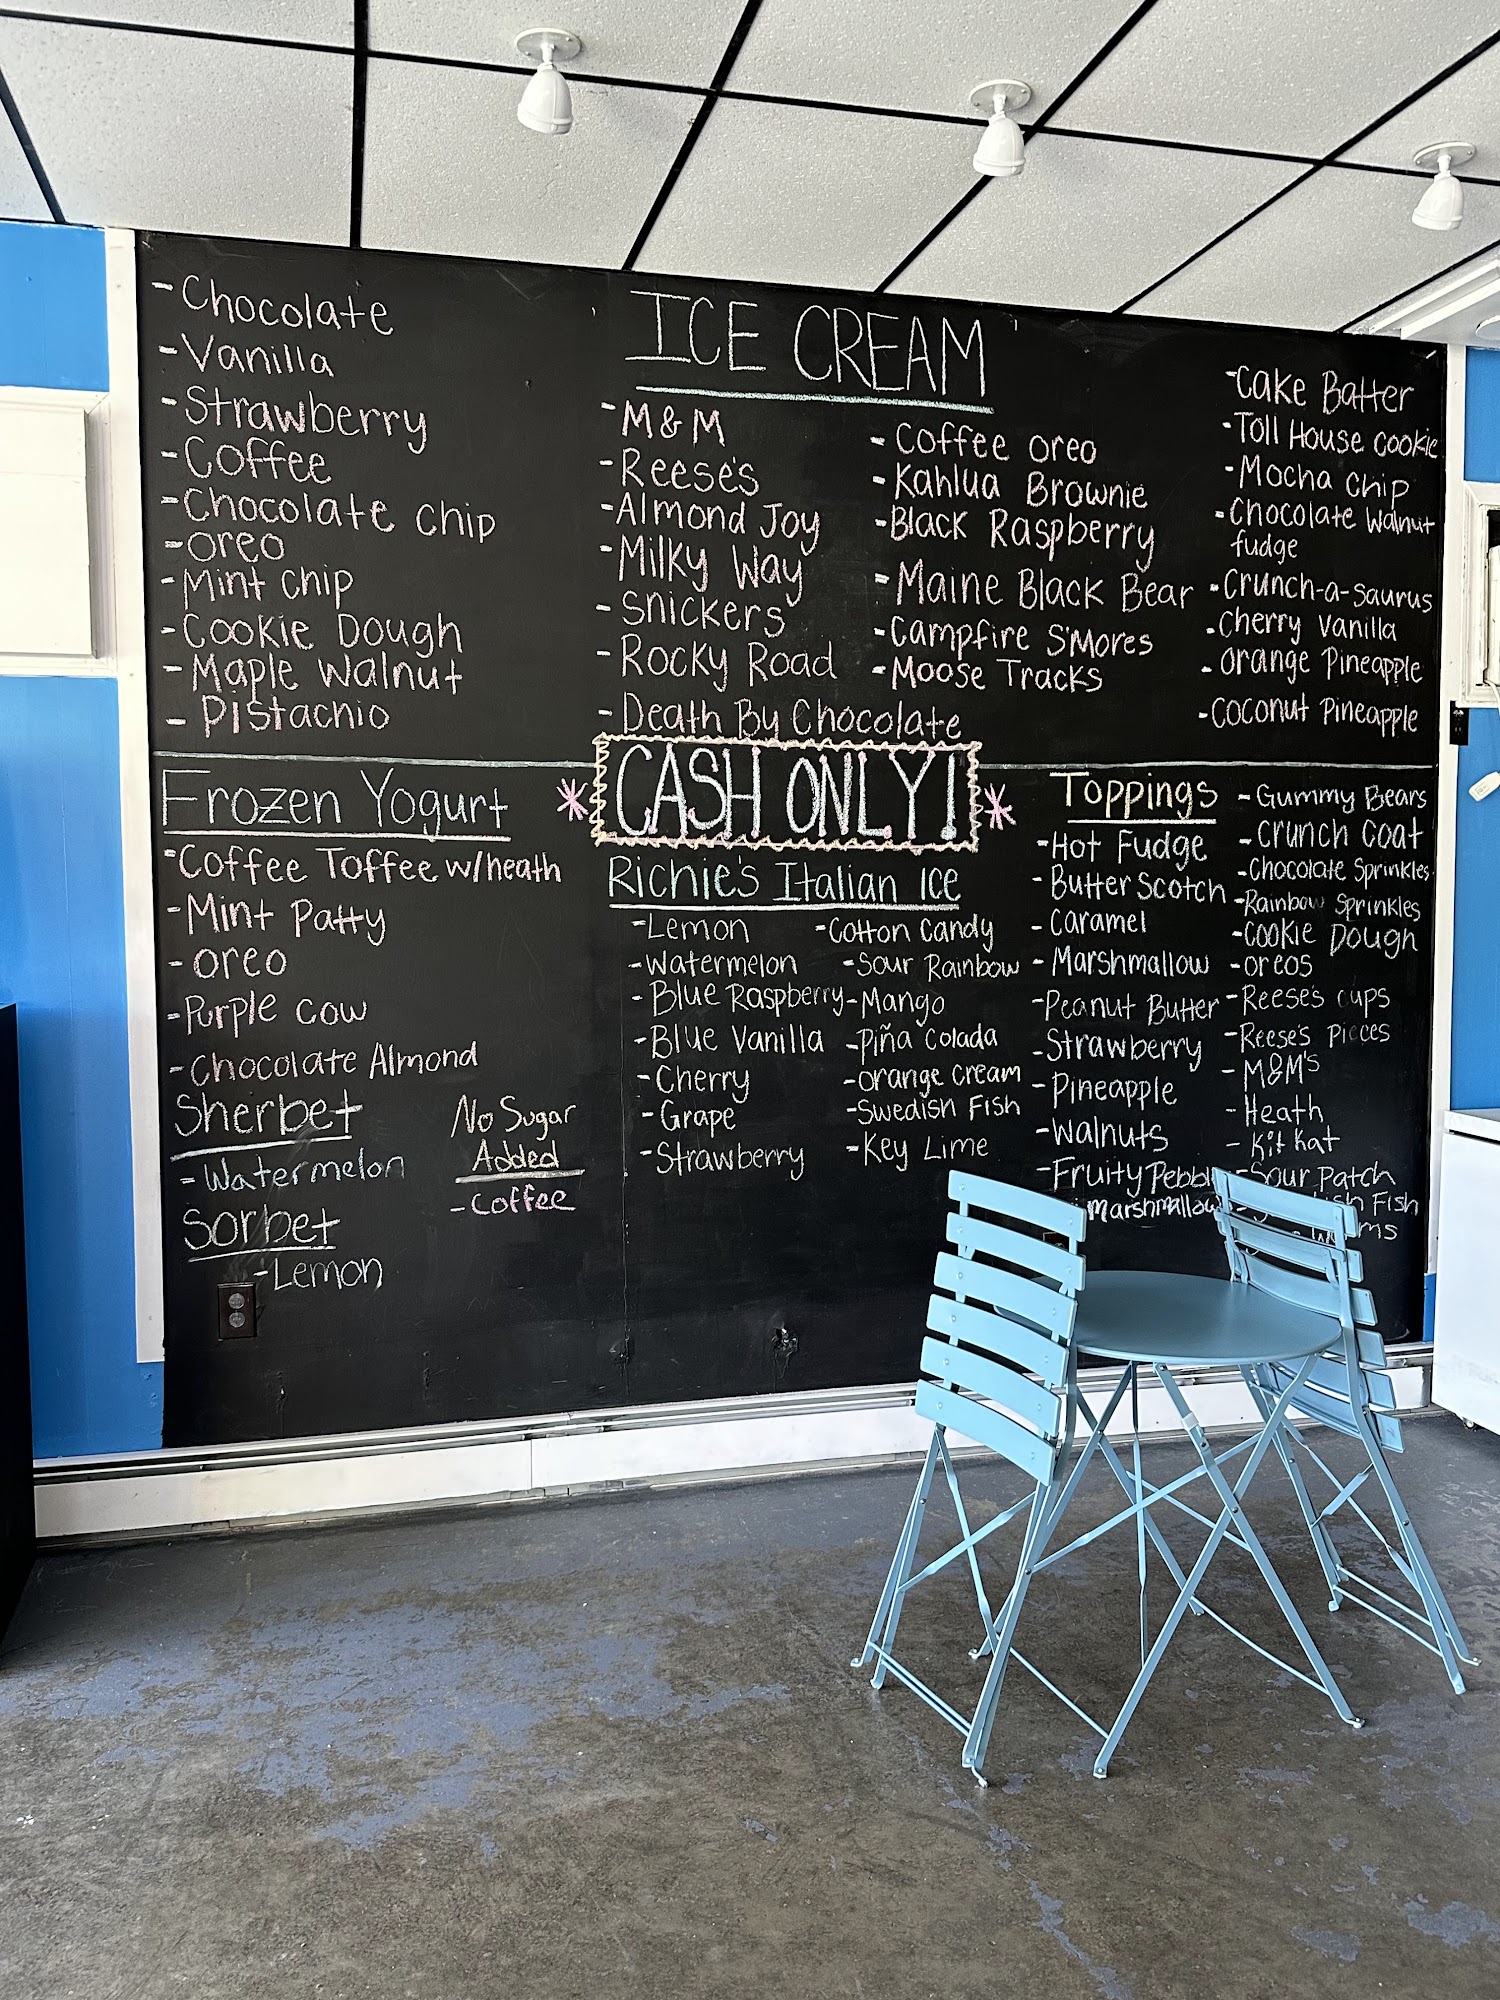 ICE CREAM
- Chocolate
- Vanilla
- Strawberry
- Coffee
- Chocolate Chip
- Oreo
- Mint Chip
- Cookie Dough
- Maple Walnut
- Pistachio
- M&M
- Reese's
- Almond Joy
- Milky Way
- Snickers
- Rocky Road
- Death By Chocolate
- Coffee Oreo
- Kahlua Brownie
- Black Raspberry
- Maine Black Bear
- Campfire S'Mores
- Moose Tracks
- Cake Batter
- Toll House Cookie
- Mocha Chip
- Chocolate Walnut
fudge
- Crunch-a-saurus
- Cherry Vanilla
- Orange Pineapple
- Coconut Pineapple
Frozen Yogurt
- Coffee Toffee w/heath
- Mint Patty
- Oreo
- Purple Cow
- Chocolate Almond
Sherbet
- Watermelon
Sorbet
- Lemon
No Sugar
Added
- Coffee
CASH ONLY!
Richie's Italian Ice
- Lemon
- Watermelon
- Blue Raspberry
- Blue Vanilla
- Cherry
- Grape
- Strawberry
- Cotton Candy
- Sour Rainbow
- Mango
- Piña Colada
- Orange Cream
- Swedish Fish
- Key Lime
Toppings
- Hot Fudge
- Butter Scotch
- Caramel
- Marshmallow
- Peanut Butter
- Strawberry
- Pineapple
- Walnuts
- Fruity
Marshmallow
- Gummy Bears
- Crunch Coat
- Chocolate Sprinkles
- Rainbow Sprinkles
- Cookie Dough
- Oreos
- Reese's Cups
- Reese's Pieces
- M&M's
- Heath
- Kit Kat
- Sour Patch
Fish